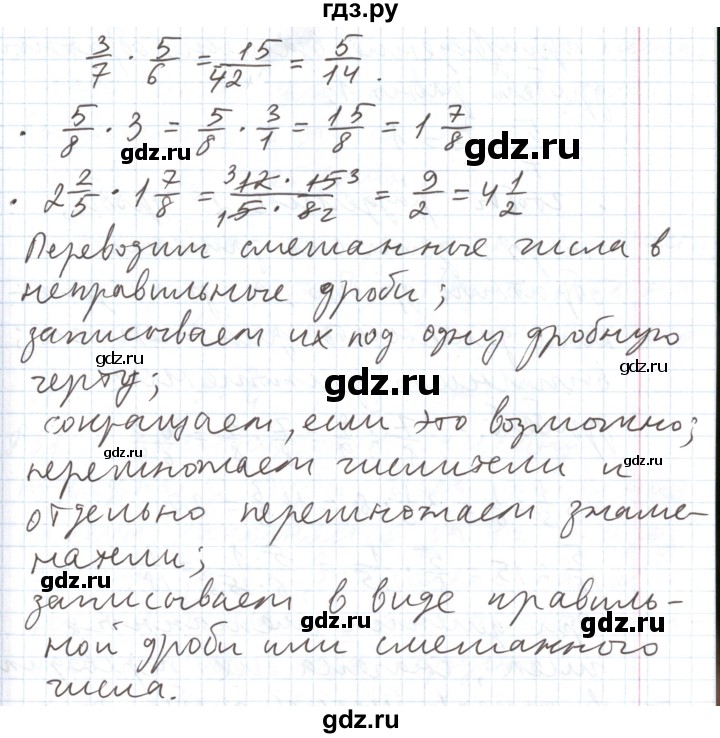 гдз.ру
3/7 · 5/6 = 15/42 = 5/14.
· 5/8 · 3 = 5/8 · 3/1 = 15/8 = 1 7/8
gdz.ru
gdz.ru
· 2 2/5 · 1 7/8 = ³12 · 15³/₁5 · 8₂ = 9/2 = 4 1/2
Переводим смешанные числа в
gdz.ru
неправильные дроби;
записываем их под одну дробную
gdz.ru
черту;
gdz.ru
сокращаем, если это возможно;
gdz.ru
перемножаем числители и
gdz.ru
отдельно перемножаем знаме-
gdz.ru
натели;
gdz.ru
записываем в виде правиль-
gdz.ru
ной дроби или смешанного
gdz.ru
числа.
gdz.ru